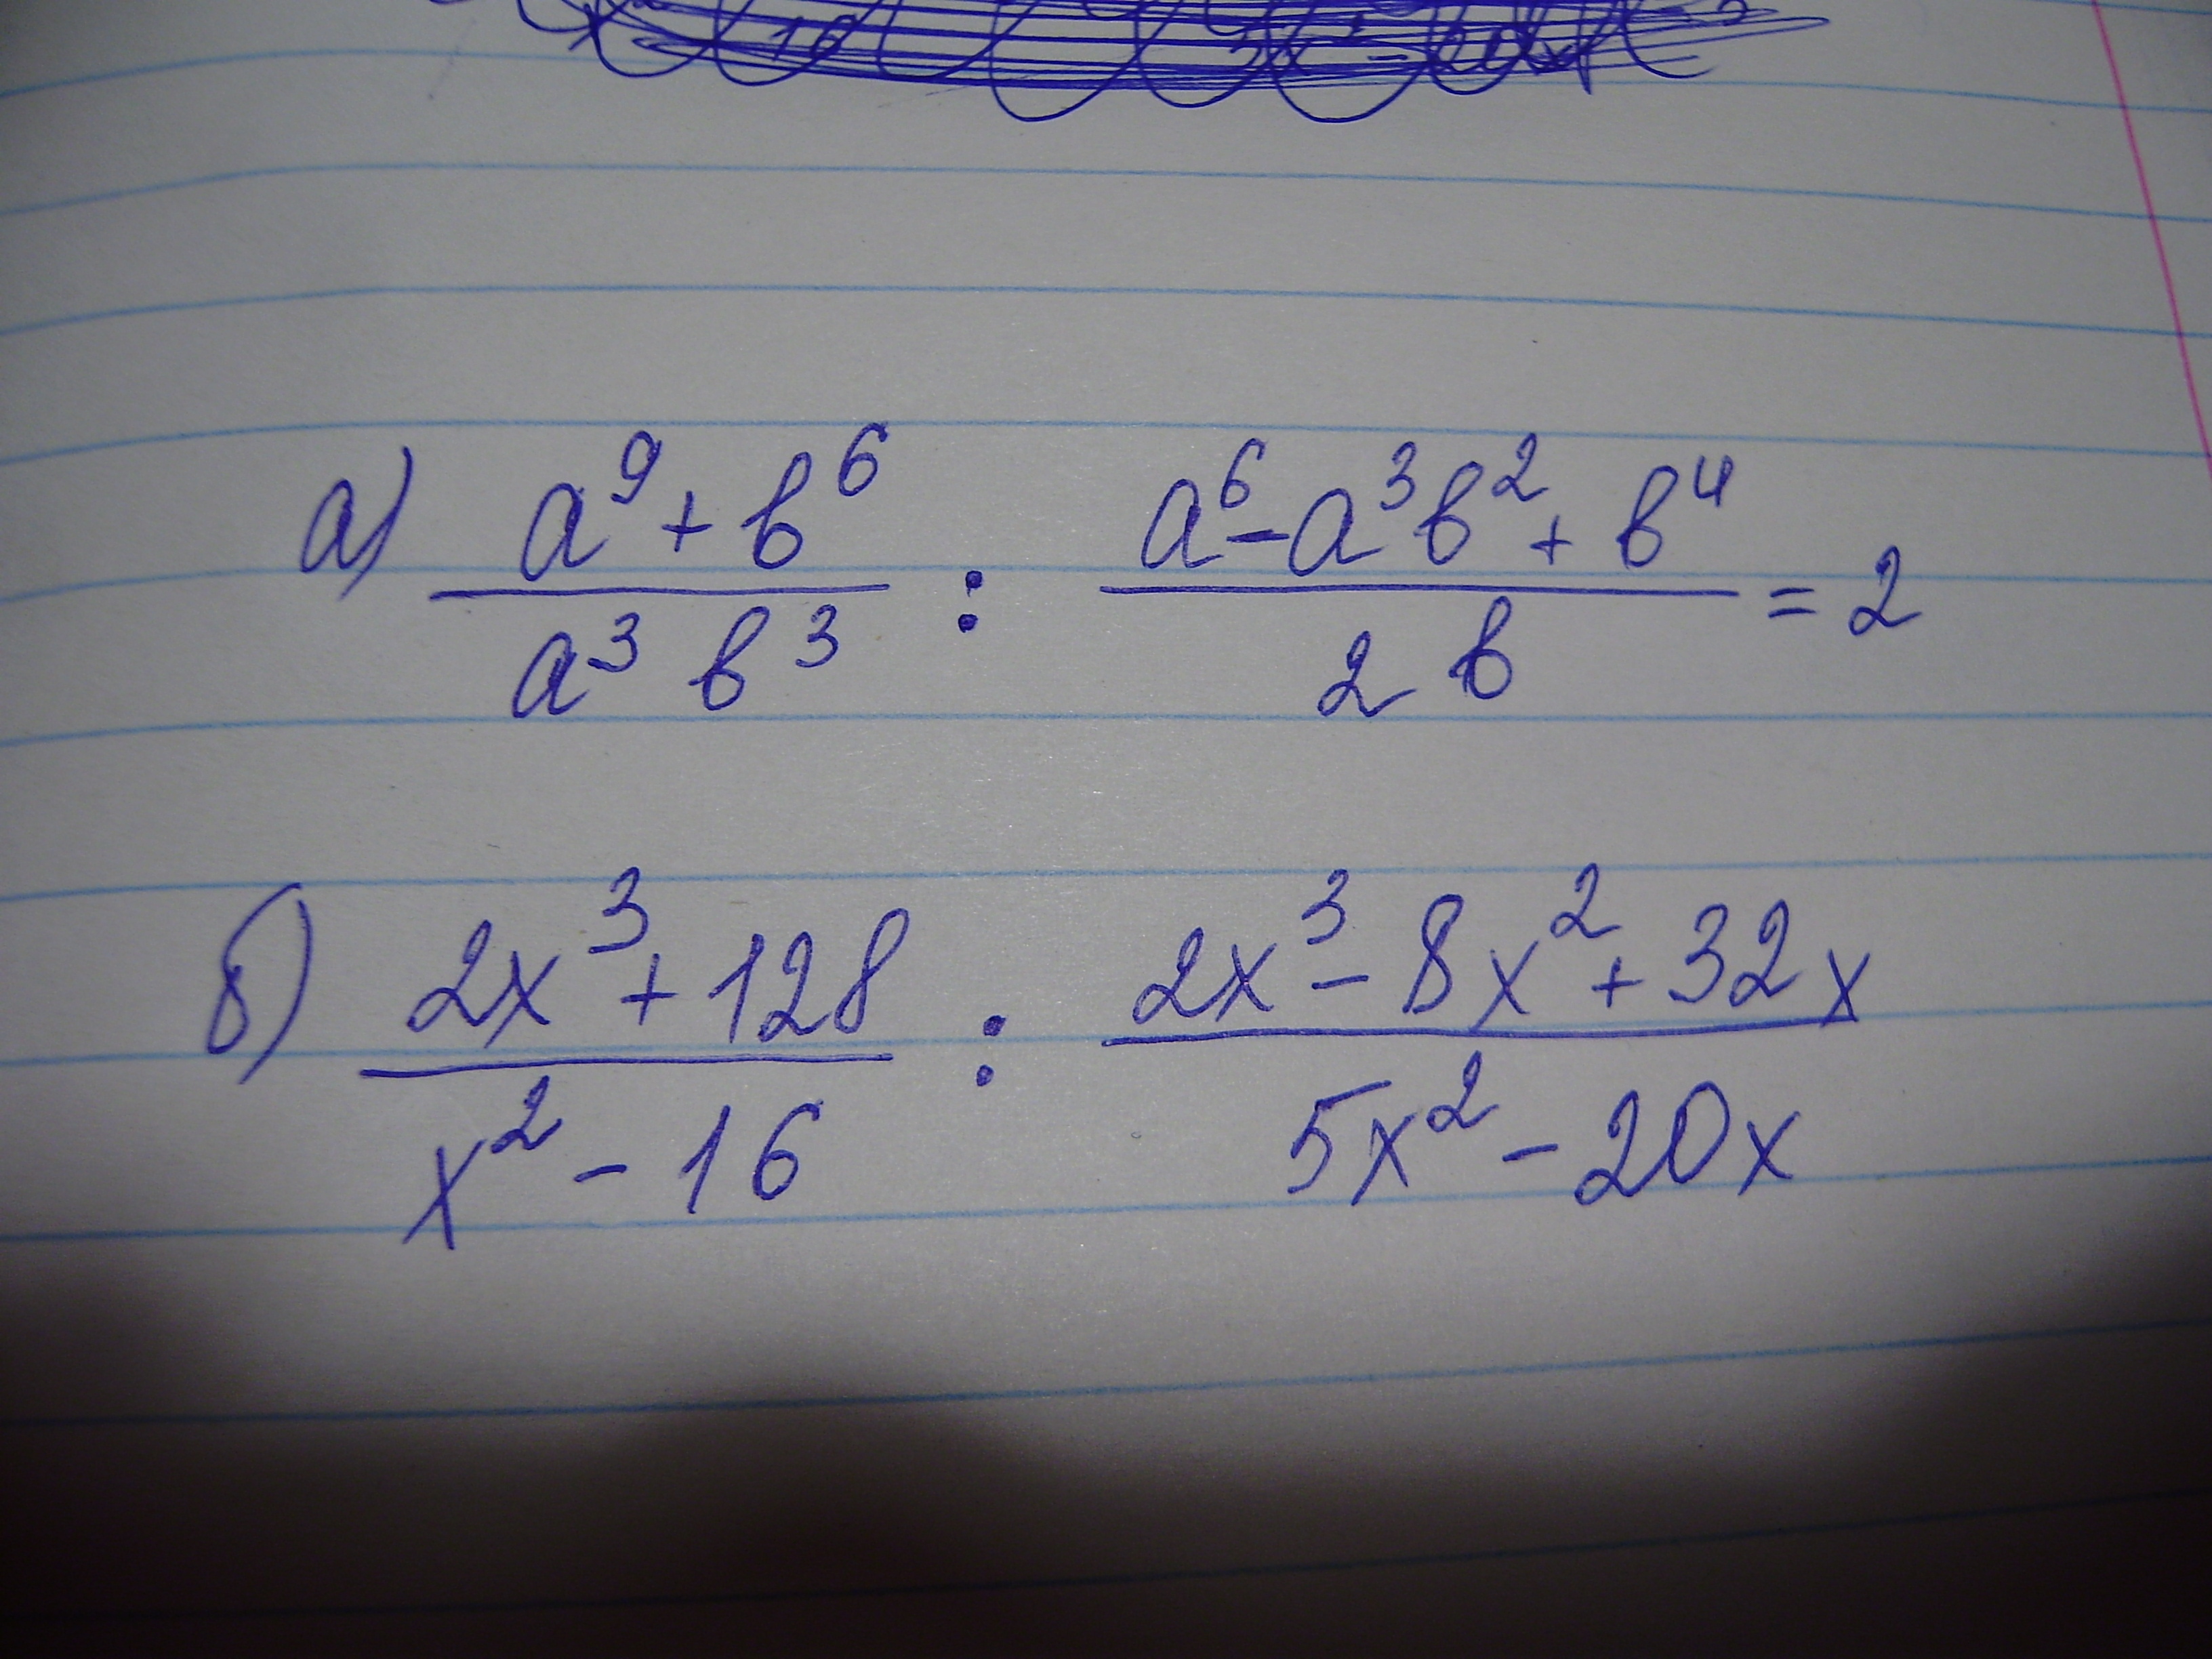 а) (a⁹ + b⁶)/(a³ b³) : (a⁶ - a³b² + b⁴)/(2 b) = 2
б) (2x³ + 128)/(x² - 16) : (2x³ - 8x² + 32x)/(5x² - 20x)